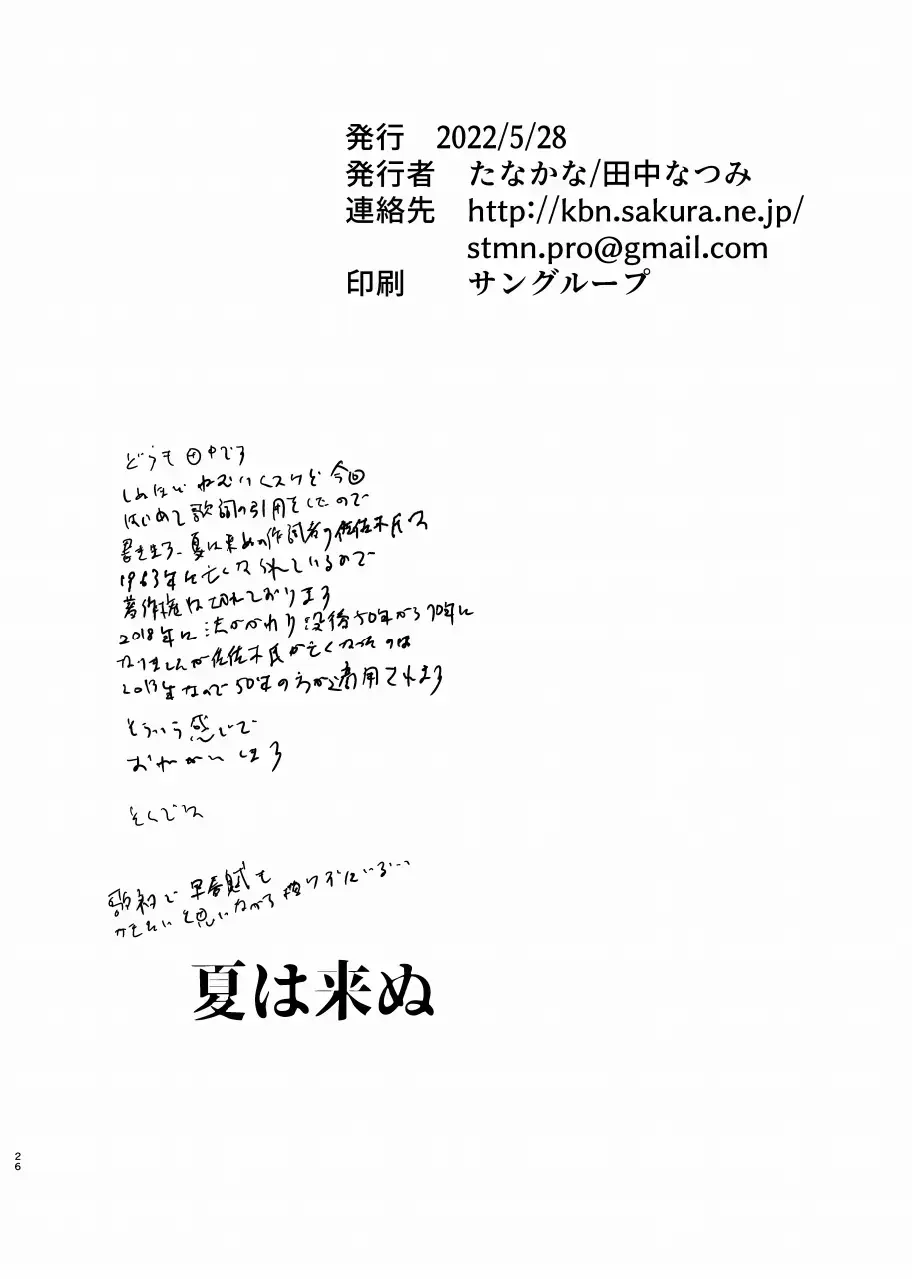 発行 2022/5/28
発行者 たなかな/田中なつみ
連絡先 http://kbn.sakura.ne.jp/
stmn.pro@gmail.com
印刷 サングループ
どうも田中です
しぬほどねむいんスけど今回
はじめて歌詞の引用をしたので
書きます、夏は来ぬの作詞者の佐佐木氏は
1963年に亡くなられているので
著作権は切れております
2018年に法がかわり没後50年から70年に
なりましたが佐佐木氏が亡くなったのは
2013年なので50年の方が適用されます
そういう感じで
おねがいします
そんでは
で早春賦も
と思いながら
夏は来ぬ
26